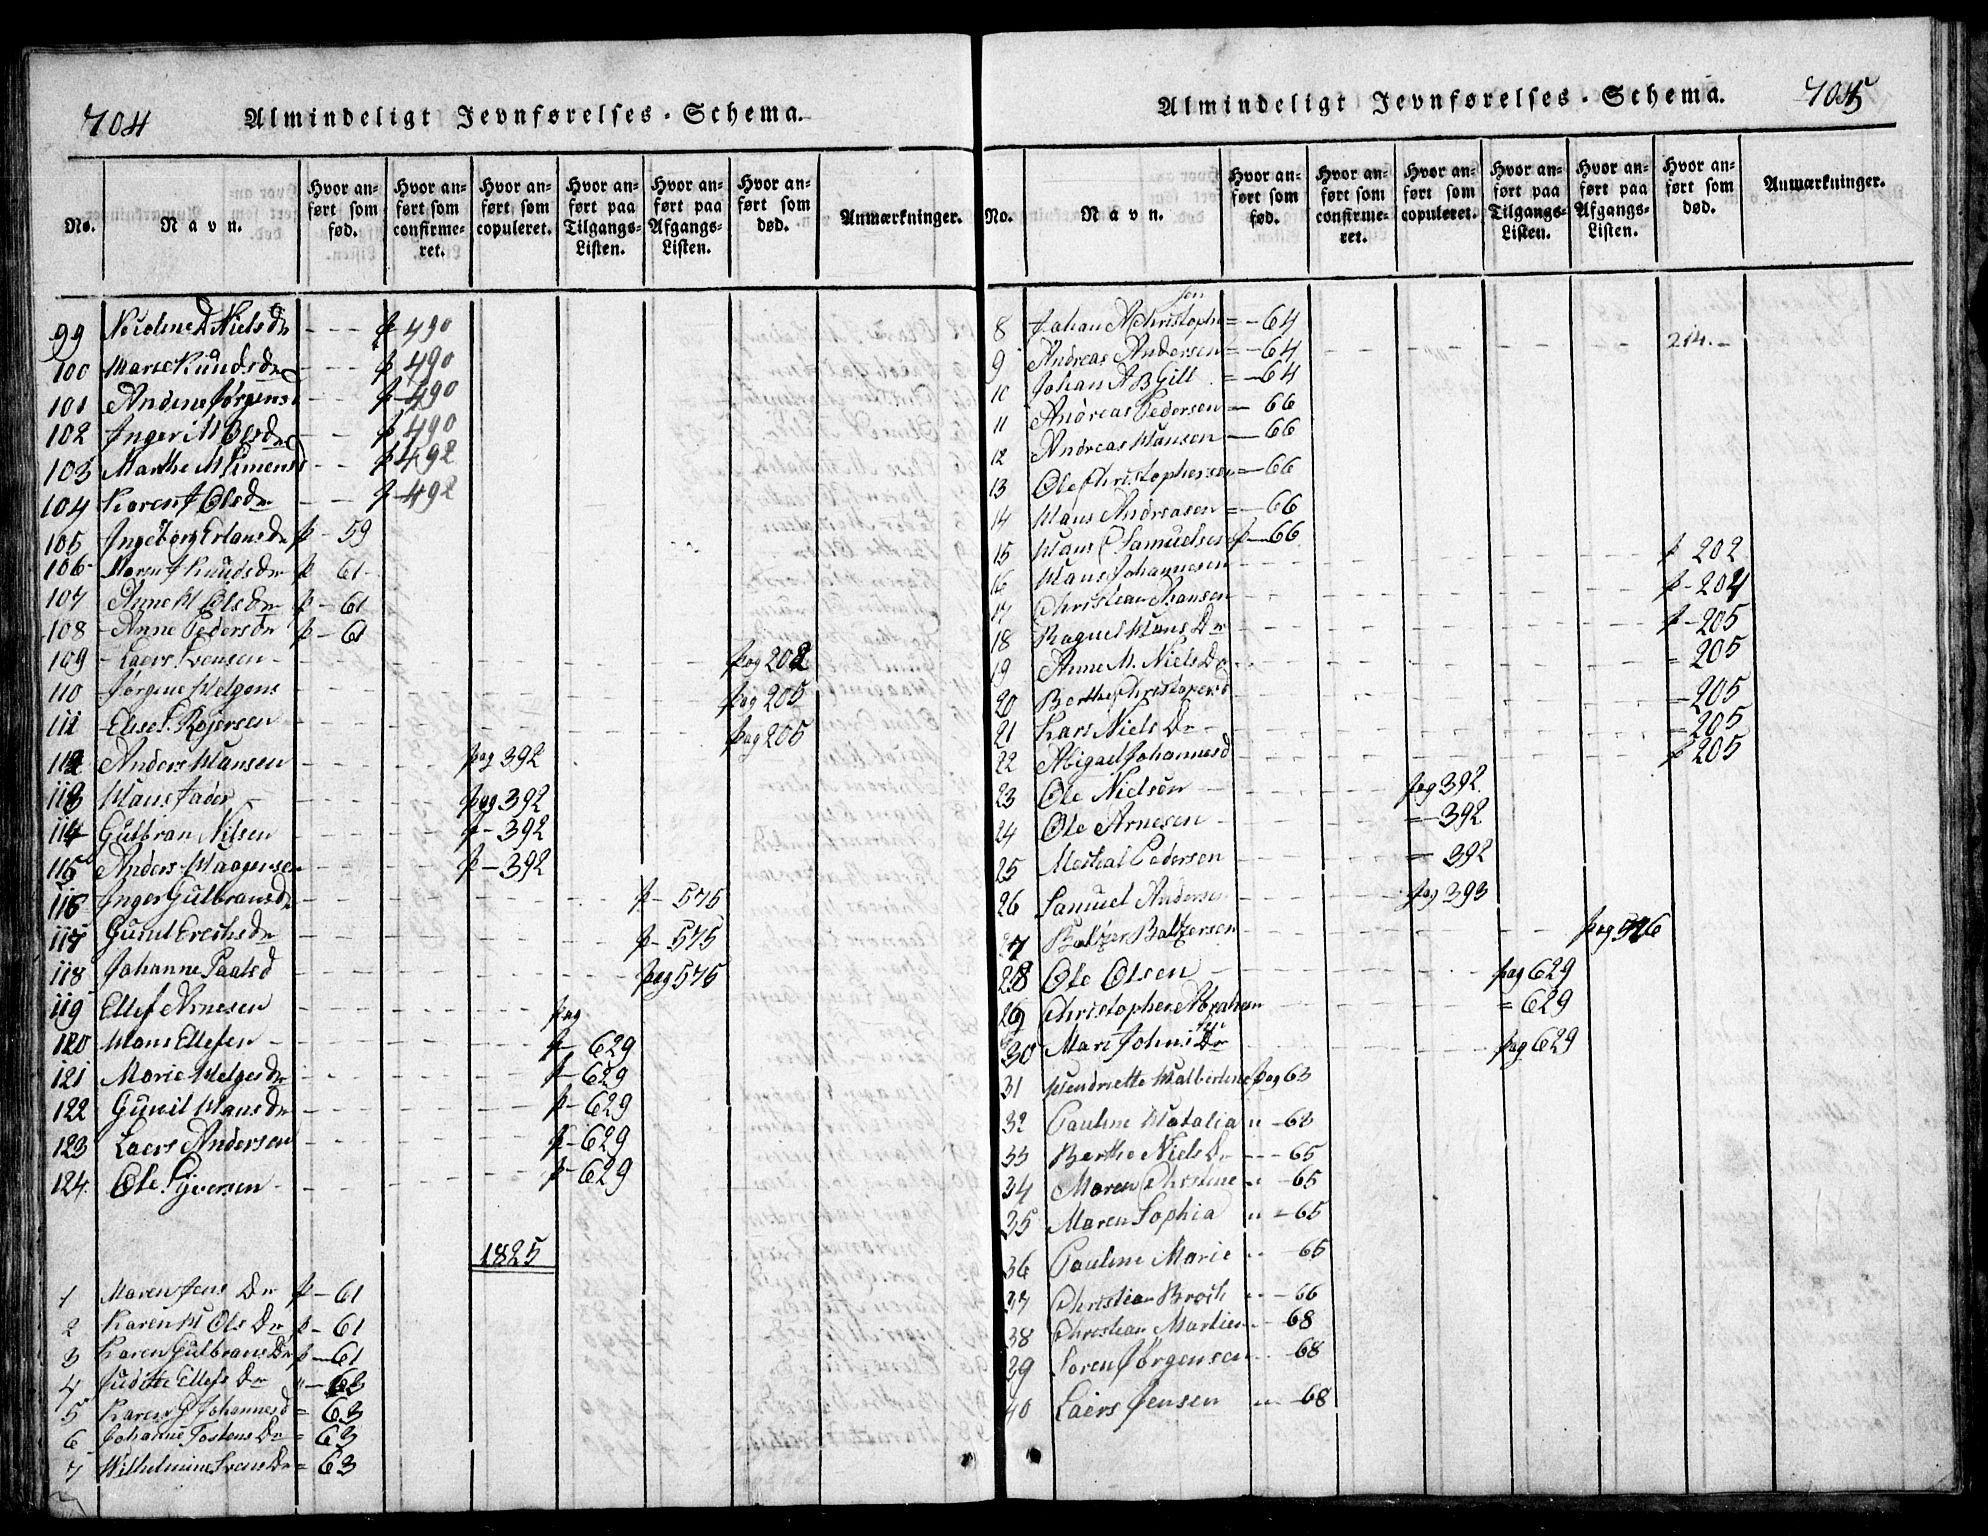 704 Almindeligt Jevnførelses-Schema.
No. Navn. Hvor anført som fød. Hvor anført som confirmeret. Hvor anført som copuleret. Hvor anført paa Tilgangs-Listen. Hvor anført paa Afgangs-Listen. Hvor anført som død. Anmærkninger.
99 Nicoline D Nielsdr p 490
100 Marte Knudsdr p 490
101 Andrine Jørgensd p 490
102 Inger M Olsdr p 490
103 Marthe M Simensd p 492
104 Karen J Olsdr p 492
105 Ingeborg Erlandsdr p - 59
106 Maren J Knudsdr p 61
107 Anne M Olsdr p - 61
108 Anne Pedersdr p - 61
109 Laers Svensen pag 202
110 Jørgine Helgens pag 205
111 Else S. Rejersen pag 205
112 Anders Hansen pag 392
113 Hans Jader pag 392
114 Gulbran Nilsen p - 392
115 Anders Haagensen p - 392
116 Inger Gulbransdr p - 575
117 Gunil Erichsdr p - 575
118 Johanne Paalsd pag 575
119 Ellef Arnesen pag
120 Hans Ellefsen p - 629
121 Marie Helgesdr p - 629
122 Gunil Hansdr p - 629
123 Laers Andersen p - 629
124. Ole Syversen p - 629
1825
1 Maren Jens Dr p - 61
2 Karen M Ols Dr p - 61
3 Karen Gulbrans Dr p - 61
4 Judithe Ellefs Dr " - 63
5 Karen G Johannesd = 63
6 Johanne Tostens Dr = 63
7 Wilhelmine Svens Dr = 63
Almindeligt Jevnførelses-Schema. 705
No. Navn. Hvor anført som fød. Hvor anført som confirmeret. Hvor anført som copuleret. Hvor anført paa Tilgangs-Listen. Hvor anført paa Afgangs-Listen. Hvor anført som død. Anmærkninger.
8 Johan A Christophsen = - 64
9 Andreas Andersen = - 64 214.
10 Johan A B Gill = - 64
11 Andreas Pedersen = 66
12 Andreas Hansen - 66
13 Ole Christophersen = - 66
14 Hans Andreasen = - 66
15 Hans C Samuelsen p - 66
16 Hans Johannesen p 202
17 Christian Hansen p - 204
18 Ragnel Hans Dr p - 205
19 Anne M. Niels Dr = 205
20 Berthe Christopersd = 205
21 Kari Niels Dr = 205
22 Abigael Johannesd p 205
23 Ole Nielsen pag 392
24 Ole Arnesen = 392
25 Michal Pedersen = 392
26 Samuel Andersen pag 393
27 Baltzer Baltzersen pag 576
28 Ole Olsen pag 629
29 Christopher Abrahamsen = 629
30 Mari Johns Dr pag 629
31 Hendriette Walbertine pag 63
32 Pauline Natalia " - 63
33 Berthe Niels Dr - - 65
34 Maren Christine " - 65
35 Maren Sophia " = 65
36 Pauline Marie " 65
37 Christian Broch " - 66
38 Christian Martin - 68
39 Soren Jørgensen - 68
40 Laers Jensen " - 68